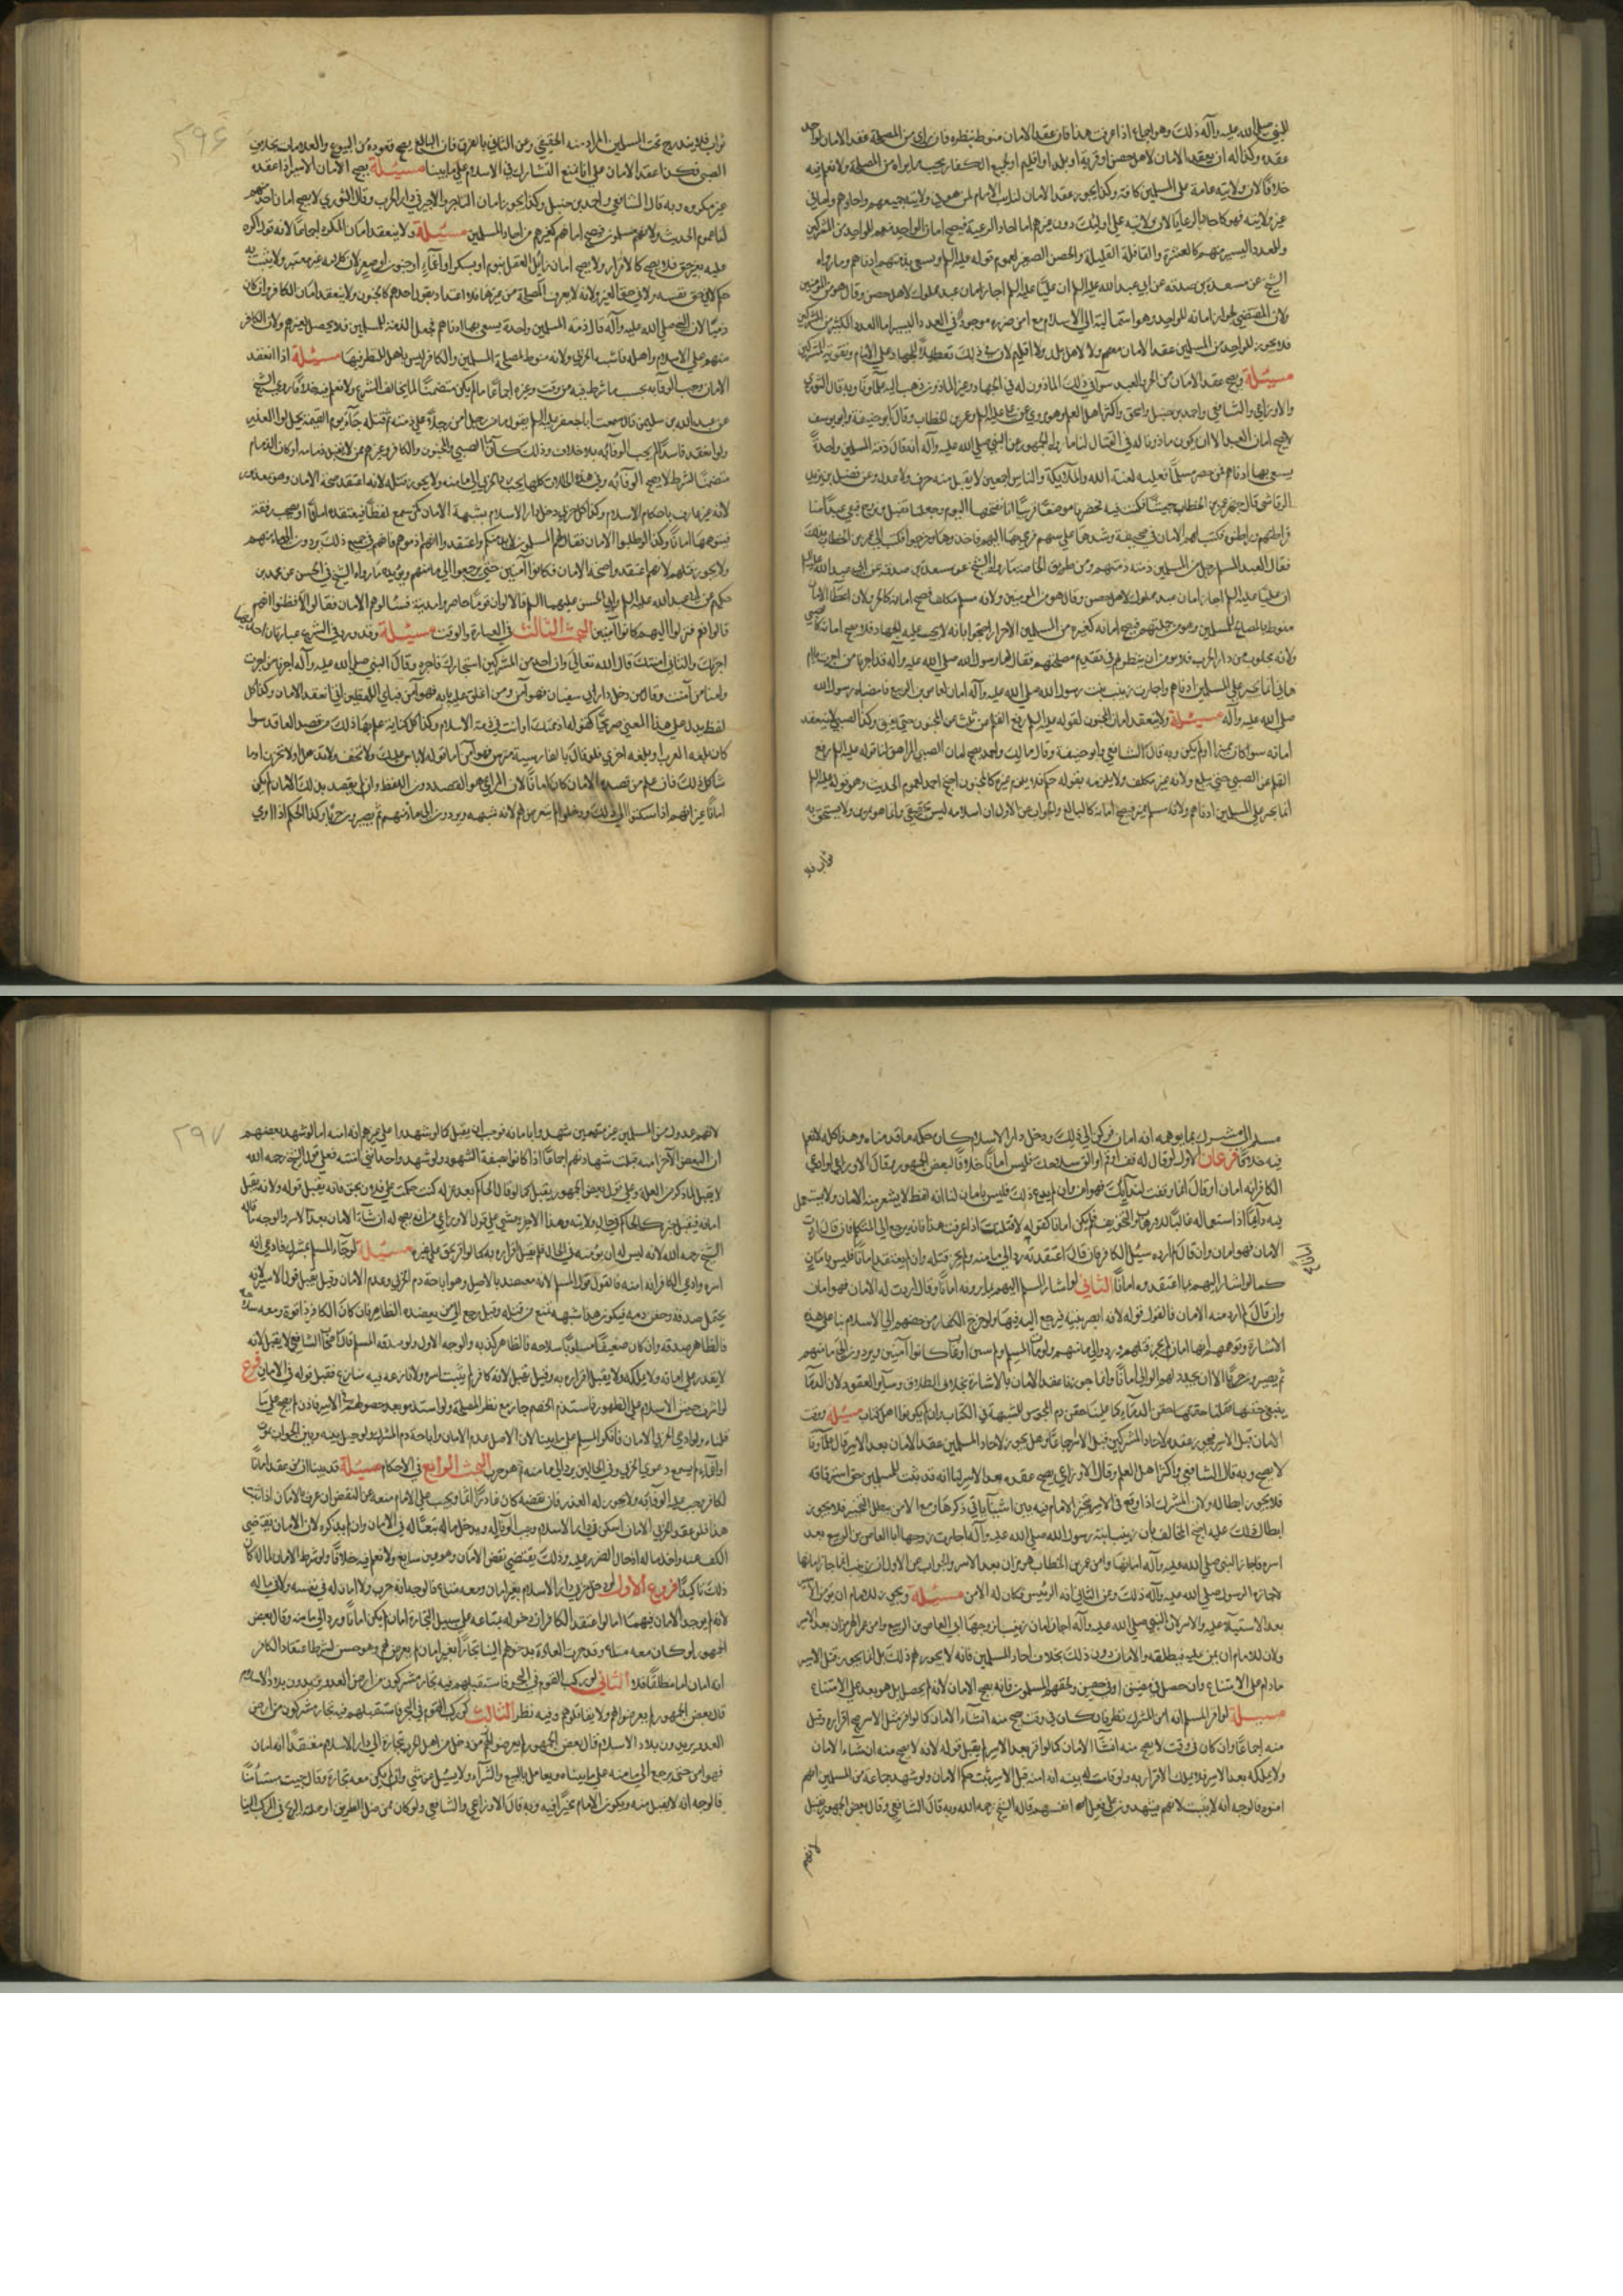 للنبي صلى الله عليه وآله ذلك وهو اجماع اذا عرفت هذا فان عقد الامان منوط بنظره فان راى من المصلحة عقد الامان لواحد
عقده وكذا له ان يعقد الامان لاهل حصن او قرية او بلد او اقليم او لجميع الكفار بحسب ما يراه من المصلحة ولا نعلم فيه
خلافًا لان ولايته عامة على المسلمين كافة وكذا يجوز عقد الامان لنايب الامام لمن هو في ولايته جميعهم واحادهم واما في
غير ولايته فهو كاحاد الرعايا لان ولايته على اولئك دون غيرهم اما احاد الرعية فيصح امان الواحد منهم للواحد من المشركين
وللعدد اليسير منهم كالعشرة والقافلة القليلة والحصن الصغير لعموم قوله عليه السلام ويسعى بذمتهم ادناهم وما رواه
الشيخ عن مسعدة بن صدقه عن ابي عبد الله عليه السلام ان عليًا عليه السلام اجاز امان عبد مملوك لاهل حصن وقال هو من المؤمنين
ولان المقتضي لجواز امانه للواحد وهو استمالته الى الاسلام مع امن ضرره موجود في العدد اليسير اما العدد الكثير من المشركين
فلا يجوز للواحد من المسلمين عقد الامان معهم ولا لاهل بلد ولا اقليم لان في ذلك تعطيلًا للجهاد على الامام وتقوية للمشركين
مسئلة ويصح عقد الامان من الحر والعبد سواء في ذلك الماذون له في الجهاد وغير الماذون ذهب اليه علماؤنا وبه قال الثوري
والاوزاعي والشافعي واحمد بن حنبل واسحق واكثر اهل العلم وهو مروي عن علي عليه السلام وعمر بن الخطاب وقال ابو حنيفة وابو يوسف
لا يصح امان العبد الا ان يكون ماذونا له في القتال لنا ما رواه الجمهور عن النبي صلى الله عليه وآله انه قال ذمة المسلمين واحدةٌ
يسعى بها ادناهم فمن خفر مسلمًا فعليه لعنة الله والملائكة والناس اجمعين لا يقبل منه صرف ولا عدل وعن فضل بن يزيد
الرقاشي قال جهز عمر بن الخطاب جيشًا فكنت فيه فحضرنا موضعًا فراينا انا نفتحها اليوم وجعلنا نقبل ونروح فبقي عبد منا
فراطنهم وراطنوه فكتب لهم الامان في صحيفة وشدها على سهم فرمى بها اليهم فاخذوها وخرجوا فكتب الى عمر بن الخطاب بذلك
فقال العبد المسلم رجل من المسلمين ذمته ذمتهم ومن طريق الخاصة ما رواه الشيخ عن مسعدة بن صدقة عن ابي عبد الله عليه السلام
ان عليًا عليه السلام اجاز امان عبد مملوك لاهل حصن وقال هو من المومنين ولانه مسلم مكلف فصح امانه كالحر ولان اعطاء الامان
منوط بالمصالح للمسلمين وهو من جملتهم فيصح امانه كغيره من المسلمين الاحرار احتجوا بانه لا يجب عليه الجهاد فلا يصح امانه كالصبي
ولانه مجلوب من دار الحرب فلا يومن ان ينظر لهم في تقديم مصلحتهم فقال لها رسول الله صلى الله عليه وآله قد اجرنا من اجرت يا ام
هاني انما يجير على المسلمين ادناهم واجارت زينب بنت رسول الله صلى الله عليه وآله امان لعاص بن الربيع فامضاه رسول الله
صلى الله عليه وآله مسئلة ولا ينعقد امان المجنون لقوله عليه السلام رفع القلم عن ثلاث عن المجنون حتى يفيق وكذا الصبي لا ينعقد
امانه سواء كان مميزا او لم يكن وبه قال الشافعي وابو حنيفة وقال مالك واحمد يصح امان الصبي المراهق لنا قوله عليه السلام رفع
القلم عن الصبي حتى يبلغ ولانه غير مكلف ولا يلزمه بقوله حكم فلا يلزم غيره كالمجنون احتج احمد بعموم الحديث وهو قوله عليه السلام
انما يجير على المسلمين ادناهم ولانه مسلم مميز فيصح امانه كالبالغ والجواب عن الاول ان اسلامه ليس بحقيقي وانما هو تمرين ولا يستحق به
ثواب فلا
٢٩۶
ثواب فلا يندرج تحت المسلمين اذ المراد منه الحقيقي وعن الثاني بالفرق فان البالغ يصح عقوده من البيوع والمعاملات بخلاف
الصبي فكذا عقد الامان على انا نمنع التشارك في الاسلام على ما بينا مسئلة يصح الامان الاسير اذا عقده
غير مكروه وبه قال الشافعي واحمد بن حنبل وكذا يجوز امان التاجر والاجير في دار الحرب وقال الثوري لا يصح امان احد منهم
لنا عموم الحديث ولانهم مسلمون فيصح امانهم كغيرهم من احاد المسلمين مسئلة ولا ينعقد امان المكره اجماعًا لانه قول اكره
عليه بغير حق فلا يصح كالاقرار ولا يصح امان زائل العقل بنوم او سكر او اغماء او جنون او صغر لان كلامه غير معتبر ولا يثبت به
حكم لا في حق نفسه ولا في حق الغير ولانه لا يعرف المصلحة من غيرها فلا اعتداد بقول احدهم كالمجنون ولا ينعقد امان الكافر وان كان
ذميًا لان النبي صلى الله عليه وآله قال ذمة المسلمين واحدة يسعى بها ادناهم فجعل الذمة للمسلمين فلا يحصل لغيرهم ولان الكافر
متهم على الاسلام واهله فاشبه الحربي ولانه منوط بمصلحة المسلمين والكافر ليس باهل للنظر فيها مسئلة اذا انعقد
الامان وجب الوفاء به بحسب ما شرط فيه من وقت وغيره اجماعًا ما لم يكن متضمنًا لما يخالف الشرع ولا نعلم فيه خلافًا روى الشيخ
عن عبد الله بن سليمن قال سمعت ابا جعفر عليه السلام يقول ما من رجل امن رجلًا على ذمته ثم قتله جآء يوم القيمة يحمل لواء الغدر
ولو انعقد فاسدًا لم يجب الوفاء به بلا خلاف وذلك كامان الصبي والمجنون والكافر وغيرهم ممن لا يقبل ذمامه او كان الذمام
متضمنًا لشرط لا يصح الوفاء به وفي هذه الحالات كلها يجب رد الحربي الى مامنه ولا يجوز قتله لانه اعتقد صحة الامان وهو معذور
لانه غير عارف باحكام الاسلام وكذا كل حربي دخل دار الاسلام بشبهة الامان كمن سمع لفظًا فيعتقده امانًا او صحب رفقة
فتوهمها امانًا وكذا لو طلبوا الامان فقال لهم المسلمون لا نذمكم واعتقدوا انهم اذموهم فانهم في جميع ذلك يردون الى مامنهم
ولا يجوز قتلهم لانهم اعتقدوا صحة الامان فكانوا آمنين حتى يرجعوا الى مامنهم ويؤيده ما رواه الشيخ في الحسن عن محمد بن
حكيم عن ابي عبد الله عليه السلام وابي الحسن عليهما السلم قالا لو ان قومًا حاصروا مدينة فسئالوهم الامان فقالوا لا فظنوا انهم
قالوا نعم فنزلوا اليهم كانوا آمنين البحث الثالث في العبارة والوقت مسئلة وقد ورد في الشرع عبارتان احديهما
اجرتك والثاني امنتك قال الله تعالى وان احد من المشركين استجارك فاجره وقال النبي صلى الله عليه وآله اجرنا من اجرت
وامنا من آمنت وقال من دخل دار ابي سفيان فهو آمن ومن اغلق عليه بابه فهو آمن فباي اللفظين اتى انعقد الامان وكذا كل
لفظ يدل على هذا المعنى صريحًا كقوله اذممتك او انت في ذمة الاسلام وكذا كل كناية علم بها ذلك من قصد العاقد سوا
كان بلغة العرب او بلغة اخرى فلو قال بالفارسية مترس فهو آمن اما قوله لا باس عليك ولا تخف ولا تذهل ولا تحزن وما
شاكل ذلك فان علم من قصده الامان كان امانًا لان المراعى هو القصد دون اللفظ وان لم يقصد بذلك الامان لم يكن
امانًا غير انهم اذا سكنوا الى ذلك ودخلوا لم يتعرض لهم لانه شبهه ويردون الى مامنهم ثم يصيرون حربًا وكذا الحكم اذا اوى
مسلم الى مشرك بما يوهمه انه امان فركن الى ذلك ودخل دار الاسلام كان حكمه ما قدمناه وهذا كله لا نعلم
فيه خلافًا فرعان الاول لو قال له قف او قم او الق سلاحك فليس امانًا خلافًا لبعض الجمهور وقال الاوزاعي لو ادعى
الكافر انه امان او قال انما وقفت لندائك فهو امن وان لم يدع ذلك فليس بامان لنا انه لفظ لا يشعر منه الامان ولا يستعمل
فيه دآئمًا اذ استعماله غالبًا للارهاب والتخويف فلم يكن امانا كقوله لاقتلنك اذا عرفت هذا فانه يرجع الى المتكلم فان قال اردت
الامان فهو امان وان قال لم ارده سئل الكافر فان قال اعتقدته رد الى مامنه ولم يجز قتله وان لم يعتقد امانًا فليس بامان
كما لو اشار اليهم بما اعتقدوه امانًا الثاني لو اشار المسلم اليهم بما يرونه امانًا وقال اردت له الامان فهو امان
وان قال لم ارد منه الامان فالقول قوله لانه ابصر بنيته فيرجع اليه فيها ولو خرج الكفار من حصنهم الى الاسلام بنا على هذه
الاشارة وتوهمهم انها امان لم يجز قتلهم ويردوا الى مامنهم ولو مات المسلم ولم يبين او غاب كانوا آمنين ويردون الى مامنهم
ثم يصيرون حربًا الا ان يجدد لهم الوالي امانًا وانما جوزنا عقد الامان بالاشارة بخلاف الطلاق وسآير العقود لان الدمآء
ينبغي حقنها فغلبنا حقن الدمآء كما غلبنا حقن دم المجوس للشبهة في الكتاب وان لم يكونوا اهل كتاب مسئلة وقت
الامان قبل الاسر فيجوز عقده لاحاد المشركين قبل الاسر اجماعًا وهل يجوز لاحاد المسلمين عقد الامان بعد الاسر قال علمآؤنا
لا يصح وبه قال الشافعي واكثر اهل العلم وقال الاوزاعي يصح عقده بعد الاسر لنا انه قد ثبت للمسلمين حق استرقاقه
فلا يجوز ابطاله ولان المشرك اذا وقع في الاسر يتخير الامام فيه بين اشيآء ياتي ذكرها ومع الامن يبطل التخيير فلا يجوز
ابطال ذلك عليه احتج المخالف بان زينب ابنة رسول الله صلى الله عليه وآله اجارت زوجها ابا العاص بن الربيع بعد
اسره فاجاز النبي صلى الله عليه وآله امانها وامن عمر بن الخطاب هرمزان بعد الاسر والجواب عن الاول ان زينب انما جاز امانها
لاجازة الرسول صلى الله عليه وآله ذلك وعن الثاني انه الرئيس فكان له الامن مسئلة ويجوز للامام ان يؤمن الاسير
بعد الاستيلاء عليه والاسر لان النبي صلى الله عليه وآله اجاز امان زينب زوجها ابي العاص بن الربيع وامن عمر الهرمزان بعد الاسر
ولان للامام ان يمن عليه فيطلقه والامان دون ذلك بخلاف احاد المسلمين فانه لا يجوز لهم ذلك بل انما يجوز قبل الاسر
ما دام على الامتناع وان حصل في مضيق او في حصن ولحقهم المسلمون فانه يصح الامان لانه لم يحصل بل هو بعد على الامتناع
مسئلة لو اقر المسلم انه امن المشرك نظر فان كان في وقت يصح منه انشاء الامان كما لو اقر قبل الاسر صح اقراره وقبل
منه اجماعًا وان كان في وقت لا يصح منه انشآء الامان كما لو اقر بعد الاسر لم يقبل قوله لانه لا يصح منه انشاء الامان
ولا يملكه بعد الاسر فلا يملك الاقرار به ولو قامت له بينه انه امنه قبل الاسر ثبت حكم الامان ولو شهد جماعة من المسلمين انهم
امنوه فالوجه انه لا يثبت لانهم يشهدون على فعل انفسهم قاله الشيخ رحمه الله وبه قال الشافعي وقال بعض الجمهور يقبل
لانهم
٢٩٧
لانهم عدول من المسلمين غير متهمين شهدوا بامانه فوجب ان يقبل كما لو شهدوا على غيرهم انه امنه اما لو شهد بعضهم
ان البعض الآخر امنه قبلت شهادتهم اجماعًا اذا كانوا بصفة الشهود ولو شهد واحد انني امنته فعلى قول الشيخ رحمه الله
لا يقبل لما ذكر من العلة وعلى قول بعض الجمهور يقبل كما لو قال الحاكم بعد عزله كنت حكمت على فلان بحق فانه يقبل قوله ولانه يقبل
امانه فيقبل خبره كالحاكم في حال ولايته وهذا الاخير يمشي على قول الاوزاعي من انه يصح له انشاء الامان بعد الاسر والوجه ما قاله
الشيخ رحمه الله لانه ليس له ان يؤمنه في الحال فلم يقبل اقراره به كما لو اقر بحق على غيره مسئلة لو جآء المسلم بمشرك فادعى انه
اسره وادعى الكافر انه امنه فالقول قول المسلم لانه معتضد بالاصل وهو اباحة دم الحربي وعدم الامان وقيل يقبل قول الاسير لانه
يحتمل صدقه وحقن دمه فيكون هذا شبهه تمنع من قتله وقيل يرجع الى من يعضده الظاهر فان كان الكافر ذا قوة ومعه سلاحه
فالظاهر صدقه وان كان ضعيفًا مسلوبًا سلاحه فالظاهر كذبه والوجه الاول ولو صدقه المسلم قال اصحاب الشافعي لا يقبل لانه
لا يقدر على امانه ولا يملكه فلا يقبل اقراره به وقيل يقبل لانه كافر لم يثبت اسره ولا نازعه فيه منازع فقبل قوله في الامان فرع
لو اشرف جيش الاسلام على الظهور فاستذم الخصم جاز مع نظر المصلحة ولو استذموا بعد حصولهم في الاسر فاذم لم يصح على ما
قلناه ولو ادعى الحربي الامان فانكر المسلم على ما بينا لان الاصل عدم الامان واباحة دم المشرك ولو حيل بينه وبين الجواب بموت
او اغماء لم يسمع دعوى الحربي وفي الحالين يرد الى مامنه ثم هو حرب البحث الرابع في الاحكام مسئلة قد بينا ان من عقد امانًا
لكافر يجب عليه الوفاء به ولا يجوز له الغدر فان نقضه كان غادرًا آثمًا ويجب على الامام منعه عن النقض ان عرف بالامان اذا ثبت
هذا فلو عقد الحربي الامان ليسكن في دار الاسلام وجب الوفآء له ودخل ماله تبعًا له في الامان وان لم يذكره لان الامان يقتضي
الكف عنه واخذ ماله ادخال الضرر عليه وذلك يقتضي نقض الامان وهو معنى سايغ ولا نعلم فيه خلافًا ولو شرط الامان لماله كان
ذلك تاكيدًا فروع الاول لو دخل حربي دار الاسلام بغير امان ومعه متاع فالوجه انه حرب ولا امان له في نفسه ولا في ماله
لانه لم يوجد الامان فيهما اما لو اعتقد الكافر ان دخوله بمتاعه على سبيل التجارة امان لم يكن امانًا ويرد الى مامنه وقال بعض
الجمهور لو كان معه متاع وقد جرت العادة بدخولهم الينا تجارًا بغير امان لم يعرض لهم وهو حسن بشرط اعتقاد الكافر
انه امان اما مطلقًا فلا الثاني لو ركب القوم في البحر فاستقبلهم فيه تجار مشركون من ارض العدو يريدون بلاد الاسلام
قال بعض الجمهور لم يعرضوا لهم ولا يقاتلوهم وفيه نظر الثالث لو ركب القوم في البحر فاستقبلهم فيه تجار مشركون من ارض
العدو يريدون بلاد الاسلام قال بعض الجمهور لم يعرضوا لهم من دخل من اهل الحرب بتجارة الى دار الاسلام معتقدًا انه امان
فهو امن حتى يرجع الى مامنه على ما بيناه ويعامل بالبيع والشرآء ولا يسئل عن شي وان لم يكن معه تجارة وقال جيت مستأمنًا
فالوجه انه لا يقبل منه ويكون الامام مخيرًا فيه وبه قال الاوزاعي والشافعي ولو كان ممن ضل الطريق او حملته الريح في المركب الينا